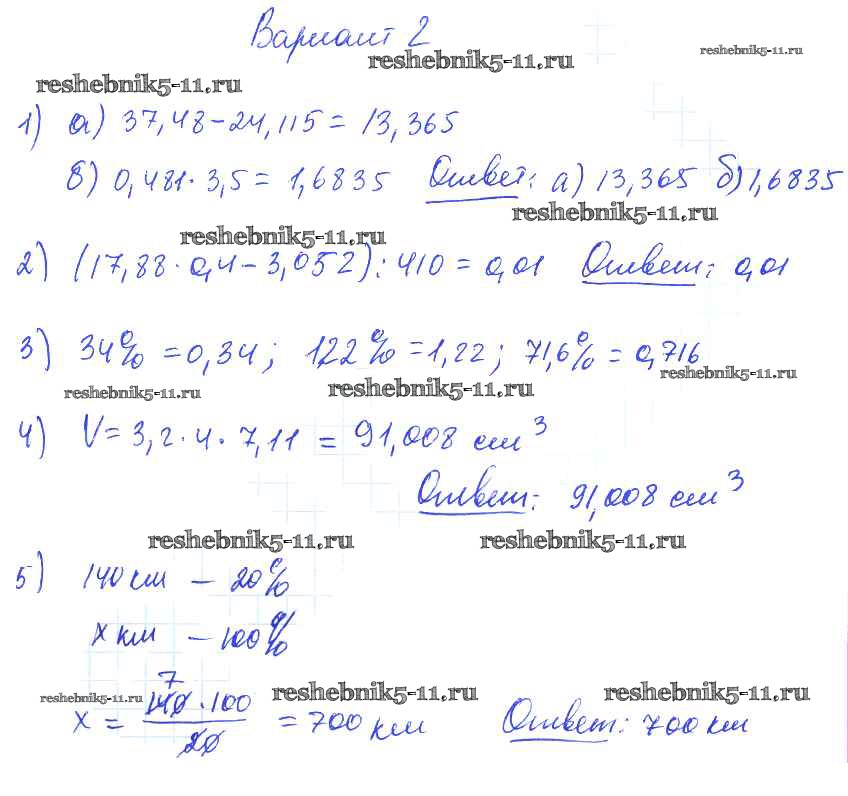 Вариант 2
reshebnik5-11.ru
reshebnik5-11.ru
reshebnik5-11.ru
1) а) 37,48-24,115 = 13,365
б) 0,481·3,5 = 1,6835 Ответ: а) 13,365 б) 1,6835
reshebnik5-11.ru
reshebnik5-11.ru
2) (17,88·0,4-3,052):410 = 0,01 Ответ: 0,01
3) 34% = 0,34; 122% = 1,22; 71,6% = 0,716
reshebnik5-11.ru
reshebnik5-11.ru
reshebnik5-11.ru
4) V = 3,2·4·7,11 = 91,008 см³
Ответ: 91,008 см³
reshebnik5-11.ru
reshebnik5-11.ru
5) 140 км – 20%
х км – 100%
reshebnik5-11.ru
reshebnik5-11.ru
reshebnik5-11.ru
7
х = 140·100 / 20 = 700 км Ответ: 700 км